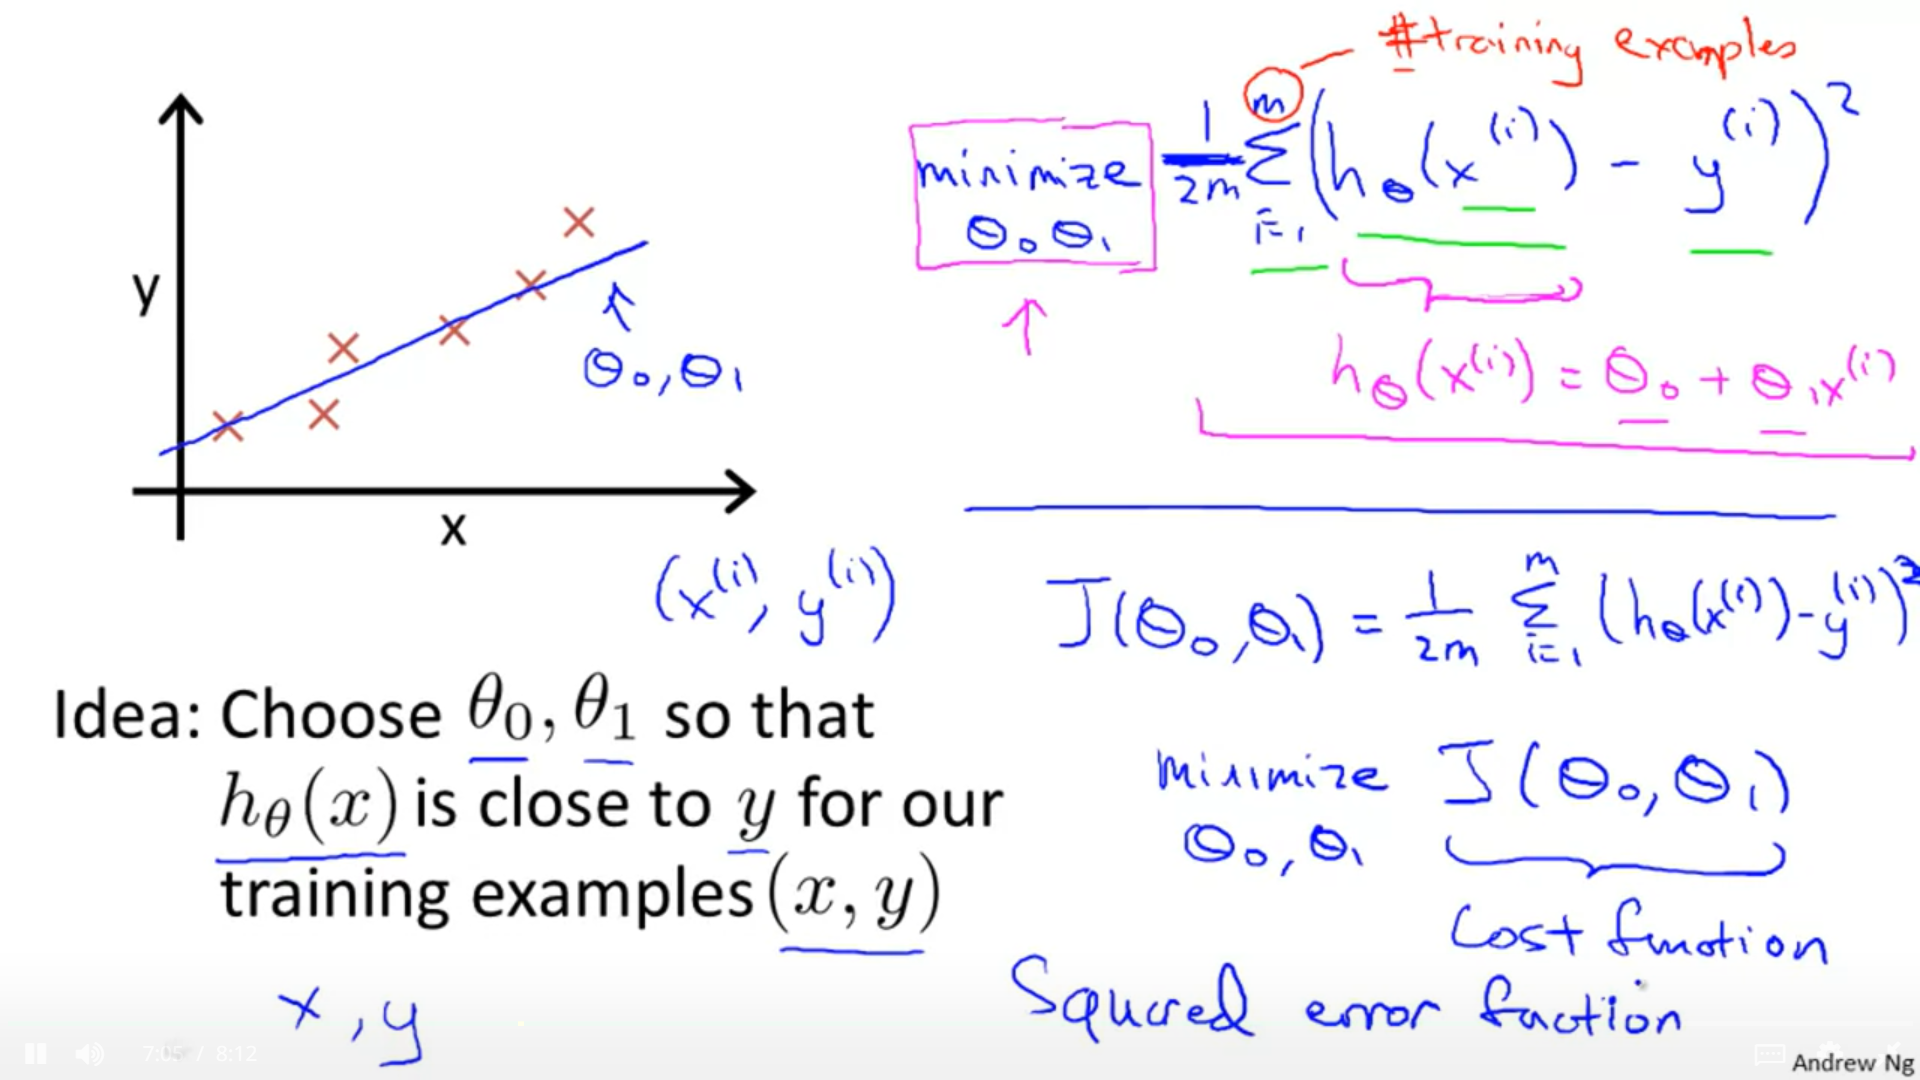 y
x
θ₀, θ₁
(x⁽ⁱ⁾, y⁽ⁱ⁾)
Idea: Choose θ₀, θ₁ so that
h_θ(x) is close to y for our
training examples (x, y)
x, y
#training examples
minimize 1/2m Σ_{i=1}^{m} (h_θ(x⁽ⁱ⁾) - y⁽ⁱ⁾)²
θ₀ θ₁
h_θ(x⁽ⁱ⁾) = θ₀ + θ₁x⁽ⁱ⁾
J(θ₀, θ₁) = 1/2m Σ_{i=1}^{m} (h_θ(x⁽ⁱ⁾) - y⁽ⁱ⁾)²
minimize J(θ₀, θ₁)
θ₀, θ₁
Cost function
Squared error function
7:05 / 8:12
Andrew Ng